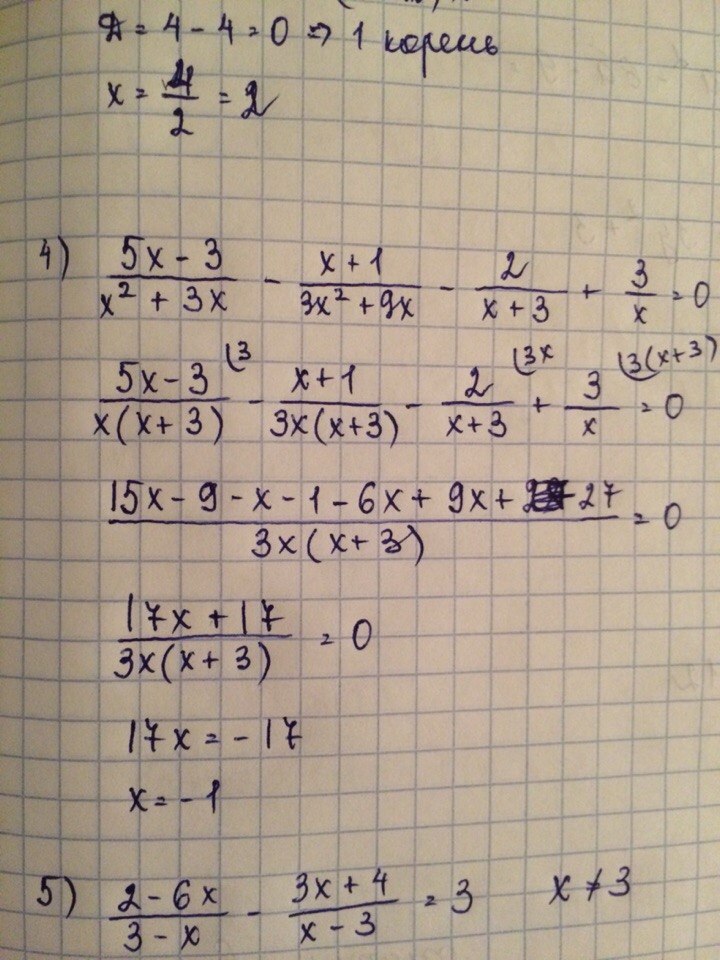 Д = 4 - 4 = 0 => 1 корень
x = 4/2 = 2
4) (5x - 3)/(x² + 3x) - (x + 1)/(3x² + 9x) - 2/(x + 3) + 3/x = 0
(5x - 3)/(x(x + 3)) (3 - (x + 1)/(3x(x+3)) - 2/(x+3) (3x + 3/x (3(x+3) = 0
(15x - 9 - x - 1 - 6x + 9x + 27)/(3x(x + 3)) = 0
(17x + 17)/(3x(x + 3)) = 0
17x = - 17
x = - 1
5) (2 - 6x)/(3 - x) - (3x + 4)/(x - 3) = 3 x ≠ 3